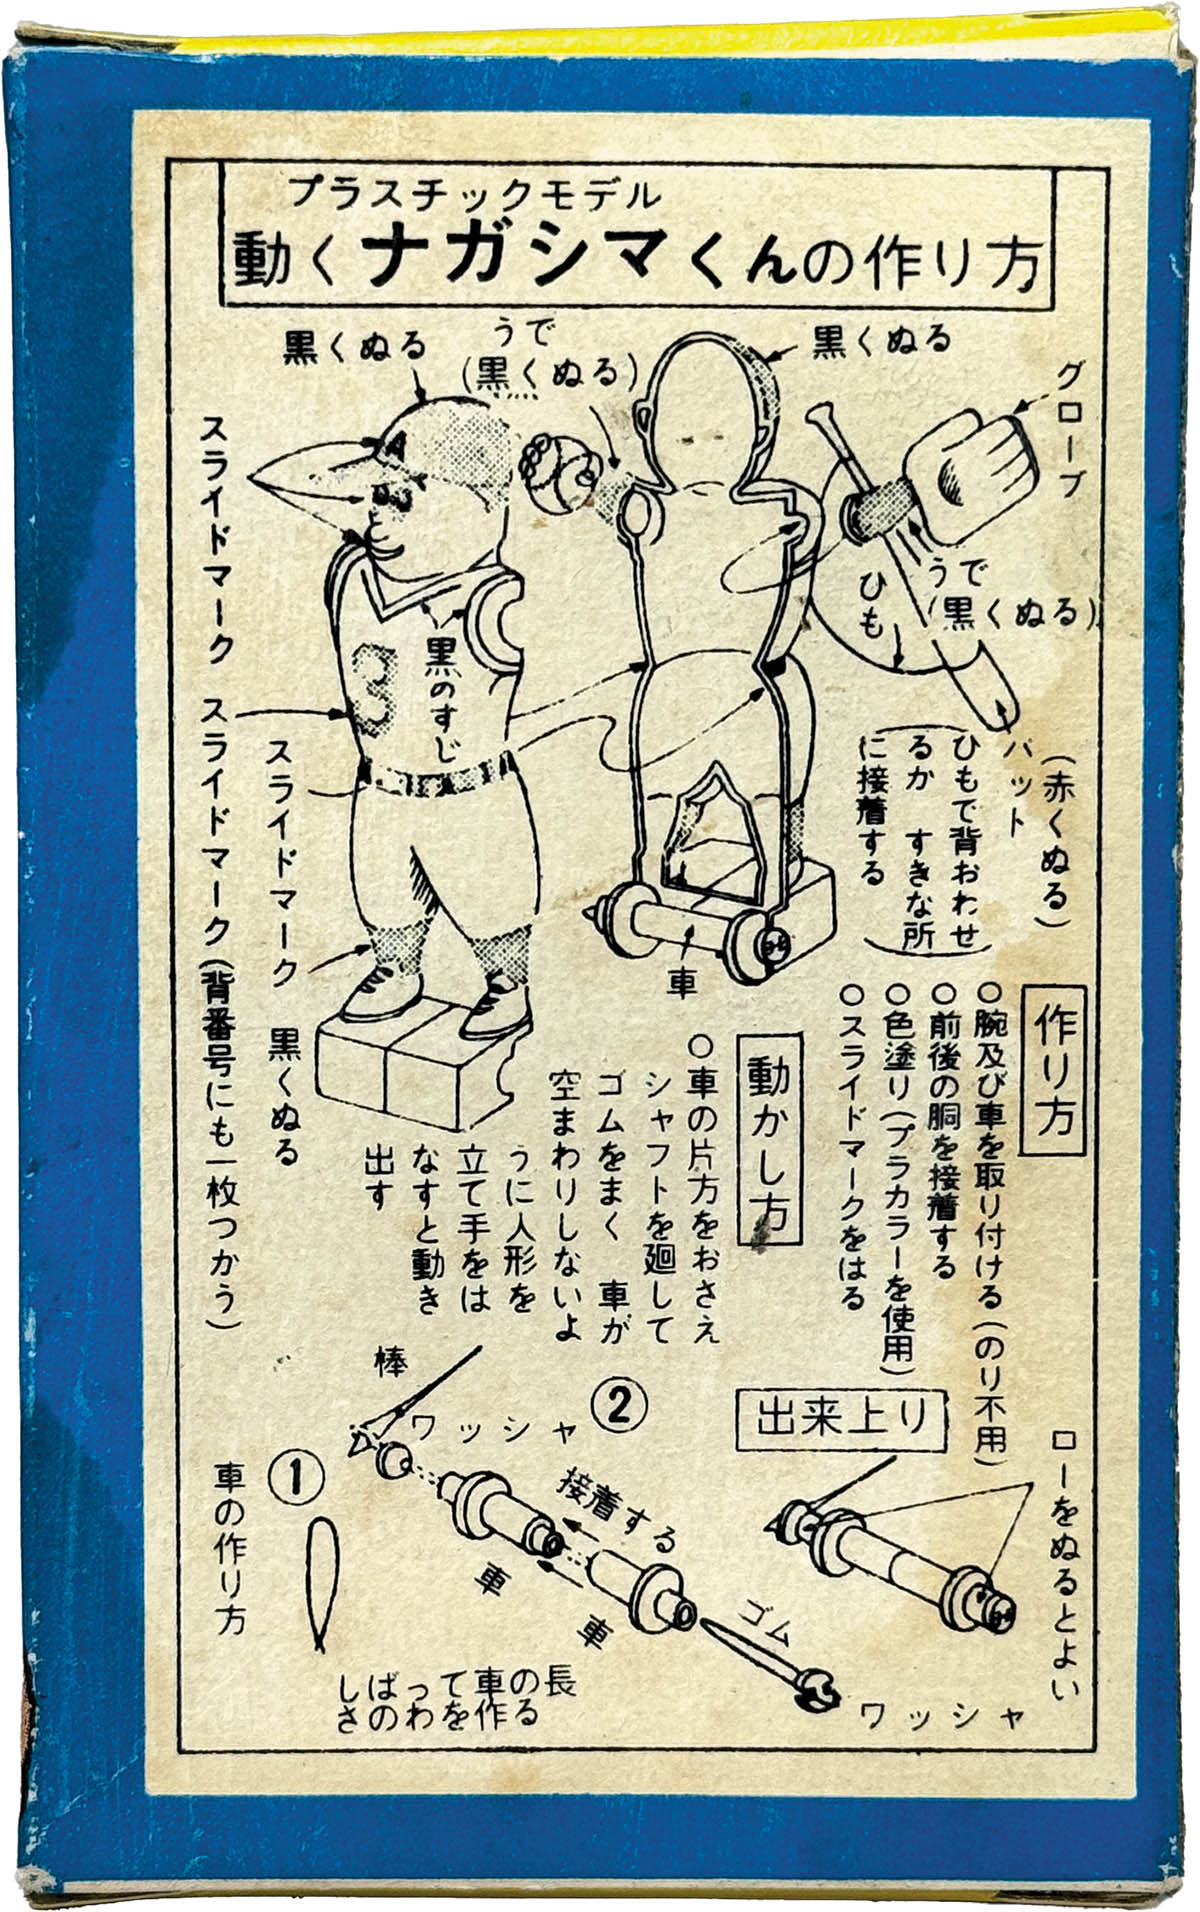 プラスチックモデル
動くナガシマくんの作り方
黒くぬる
うで
(黒くぬる)
黒くぬる
グローブ
スライドマーク
うで
(黒くぬる)
ひも
黒のすじ
3
スライドマーク(背番号にも一枚つかう)
スライドマーク
黒くぬる
バット
(赤くぬる)
(ひもで背おわせ
るか すきな所
に接着する)
車
作り方
○腕及び車を取り付ける(のり不用)
○前後の胴を接着する
○色塗り(プラカラーを使用)
○スライドマークをはる
動かし方
○車の片方をおさえ
シャフトを廻して
ゴムをまく 車が
空まわりしないよ
うに人形を
立て手をは
なすと動き
出す
出来上り
ローをぬるとよい
車の作り方
①
しばって車の長
さのわを作る
②
棒
ワッシャ
接着する
車
車
ゴム
ワッシャ